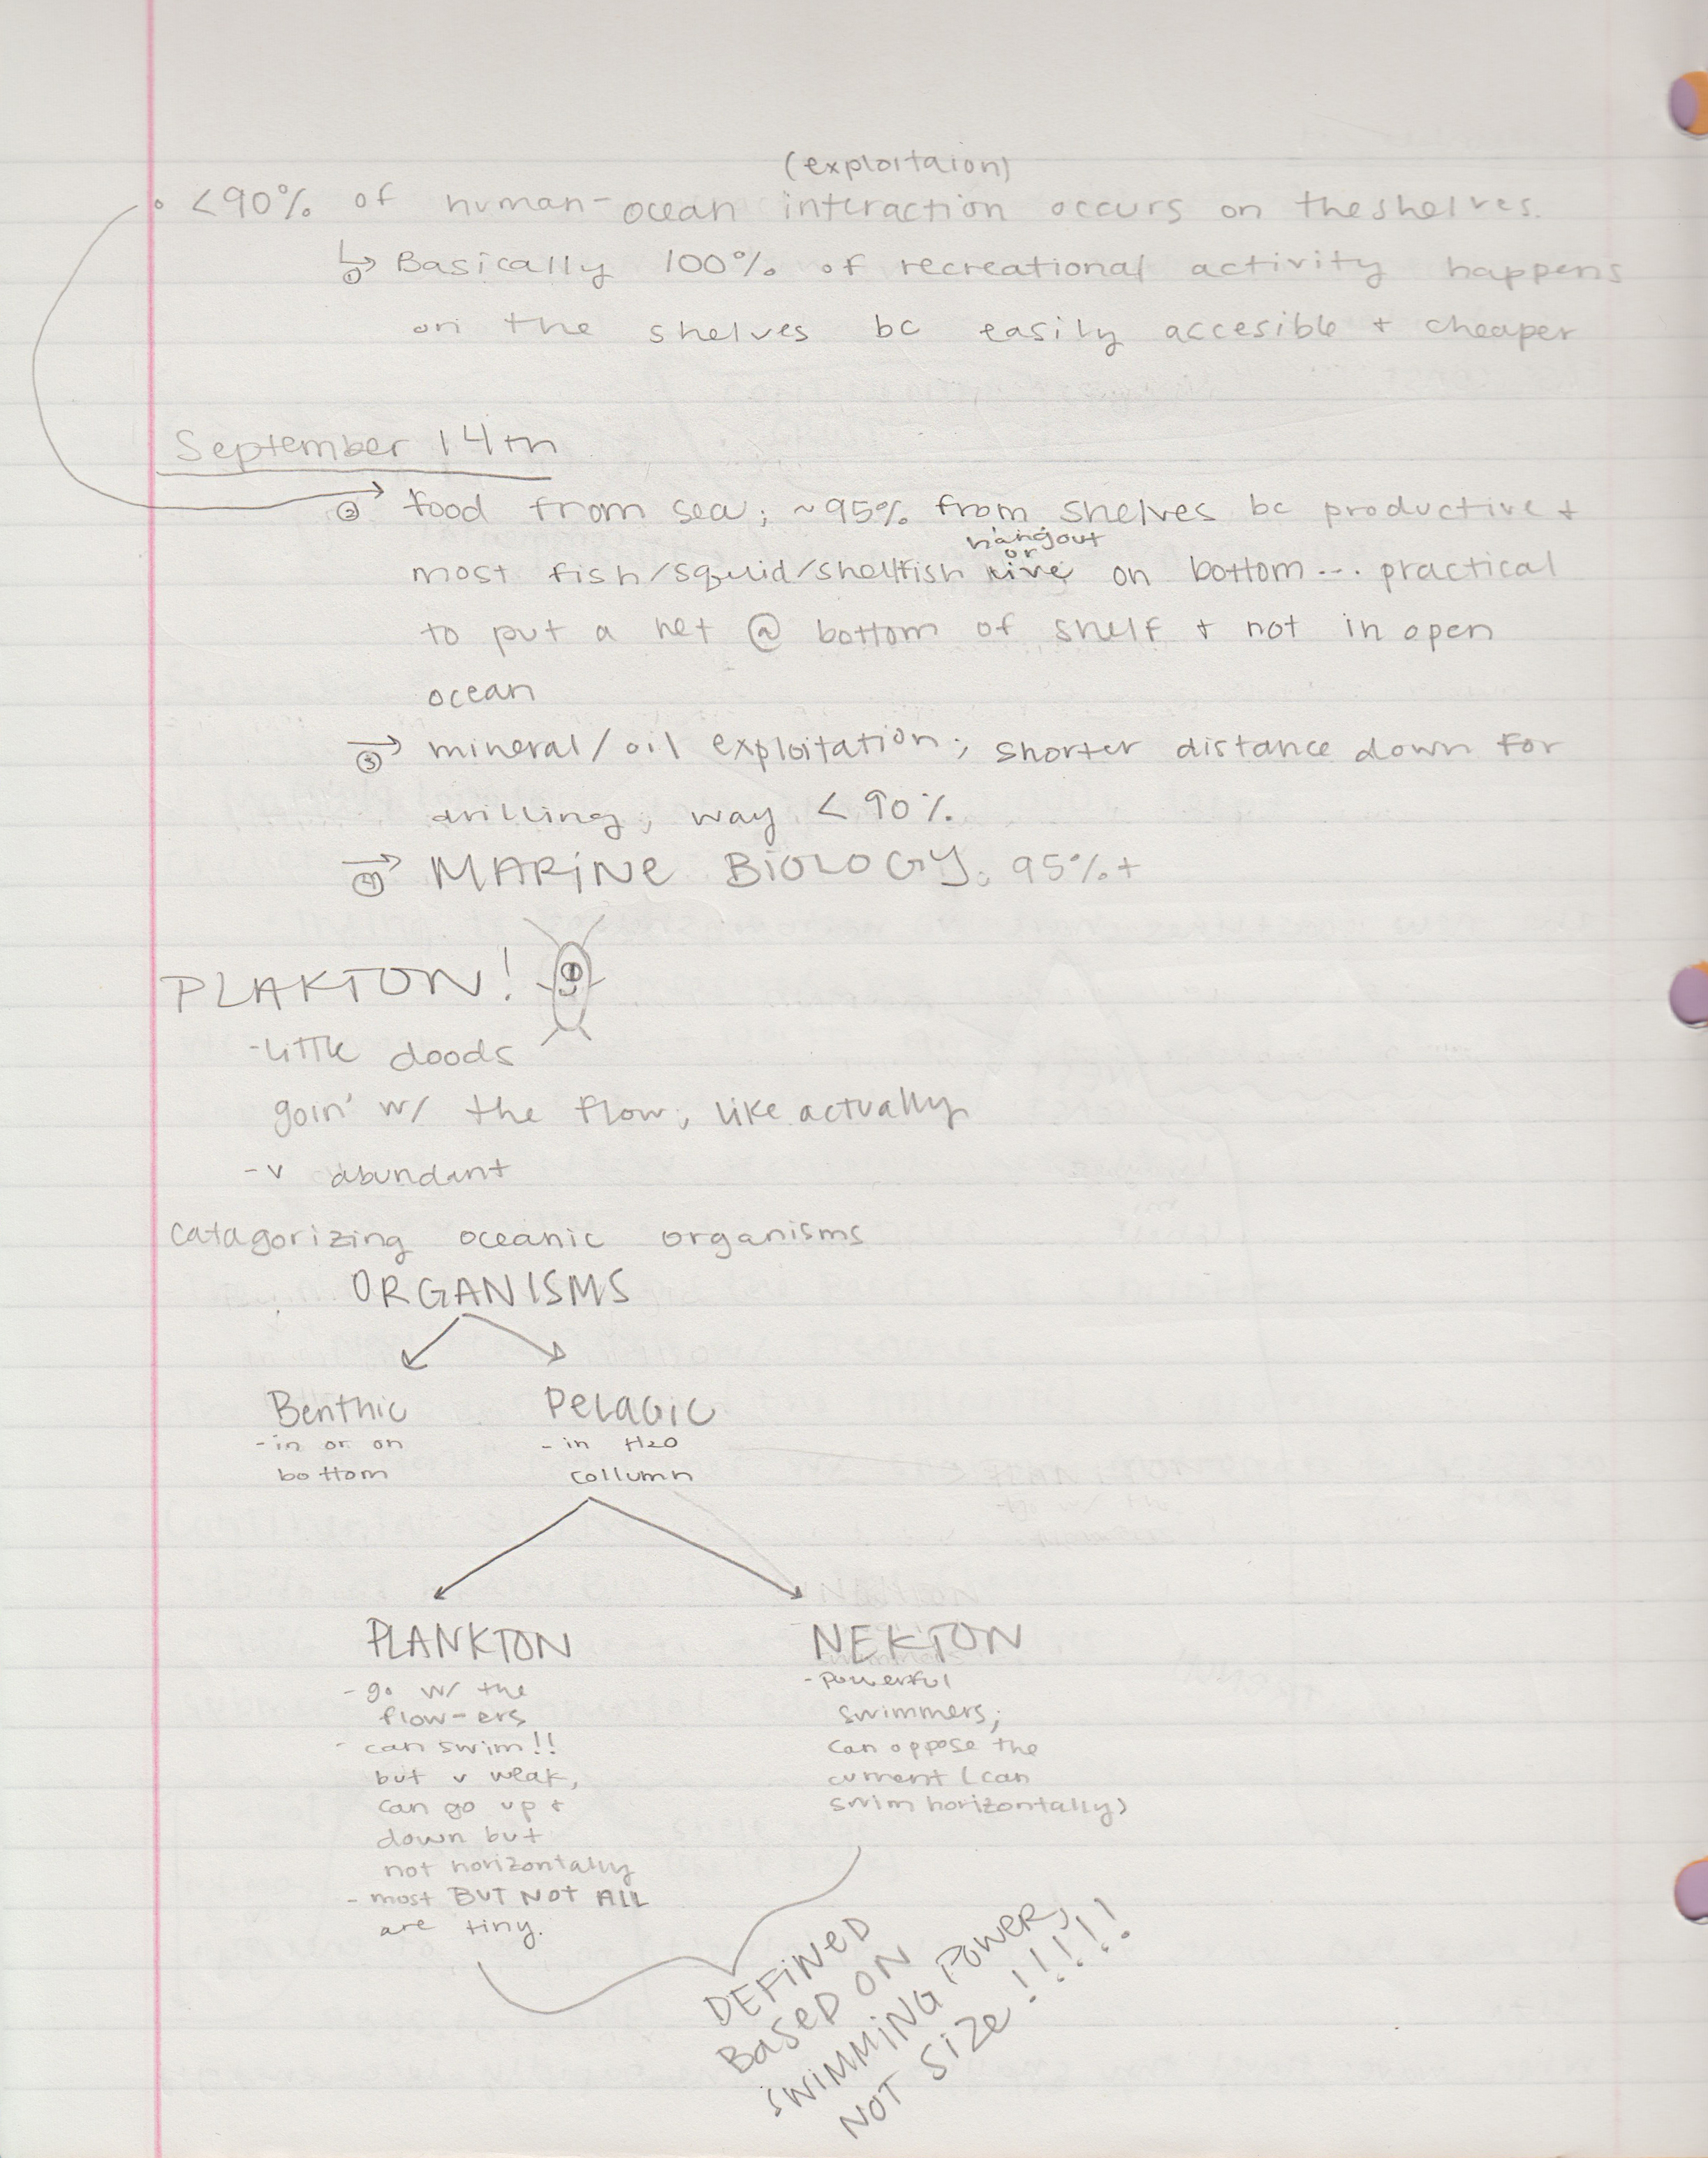 (exploitaion)
<90% of human-ocean interaction occurs on the shelves.
① Basically 100% of recreational activity happens
on the shelves bc easily accesible + cheaper
September 14th
② food from sea; ~95% from shelves bc productive +
hangout
or
most fish/squid/shellfish live on bottom... practical
to put a net @ bottom of shelf + not in open
ocean
③ mineral/oil exploitation; shorter distance down for
drilling; way < 90%
④ MARiNe BiOLOGY; 95%+
PLAKTON!
-little doods
goin' w/ the flow, like actually
-v abundant
catagorizing oceanic organisms
ORGANISMS
Benthic
-in or on
bottom
PELAGIC
-in H2O
collumn
PLANKTON
-go w/ the
flow-ers
-can swim!!
but v weak,
can go up +
down but
not horizontally
-most BUT NOT ALL
are tiny.
NEKTON
-powerful
swimmers;
can oppose the
current (can
swim horizontally)
DEFiNeD
BaseD ON
SWiMMiNG POWeR,
NOT SiZe!!!!!